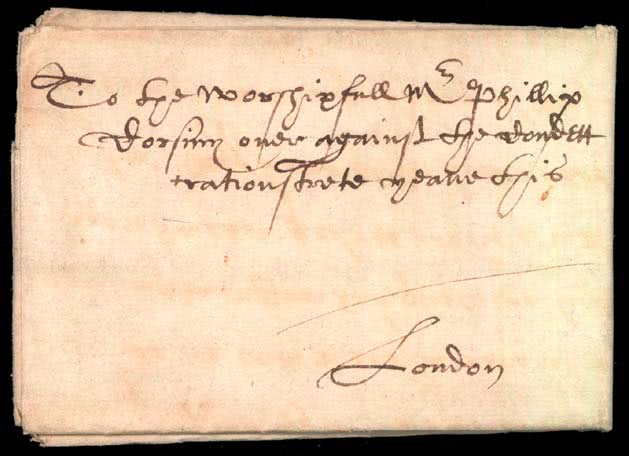 To the worshipfull Mr Phillip
Corsiny over against the Condett
crationstrete yeave this
London